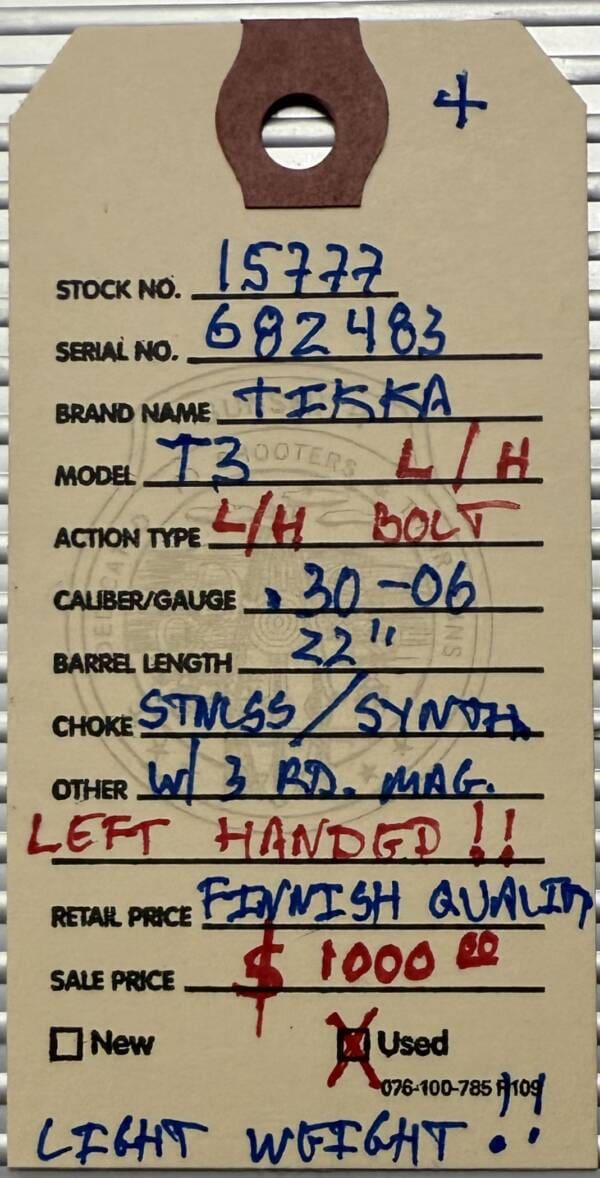 +
STOCK NO. 15777
SERIAL NO. 682483
BRAND NAME TIKKA
MODEL T3 L/H
ACTION TYPE L/H BOLT
CALIBER/GAUGE .30-06
BARREL LENGTH 22"
CHOKE STNLSS/SYNTH.
OTHER W/ 3 RD. MAG.
LEFT HANDED!!
RETAIL PRICE FINNISH QUALITY
SALE PRICE $ 1000 00
New X Used
076-100-785 R109
LIGHT WEIGHT!!
SHOOTERS